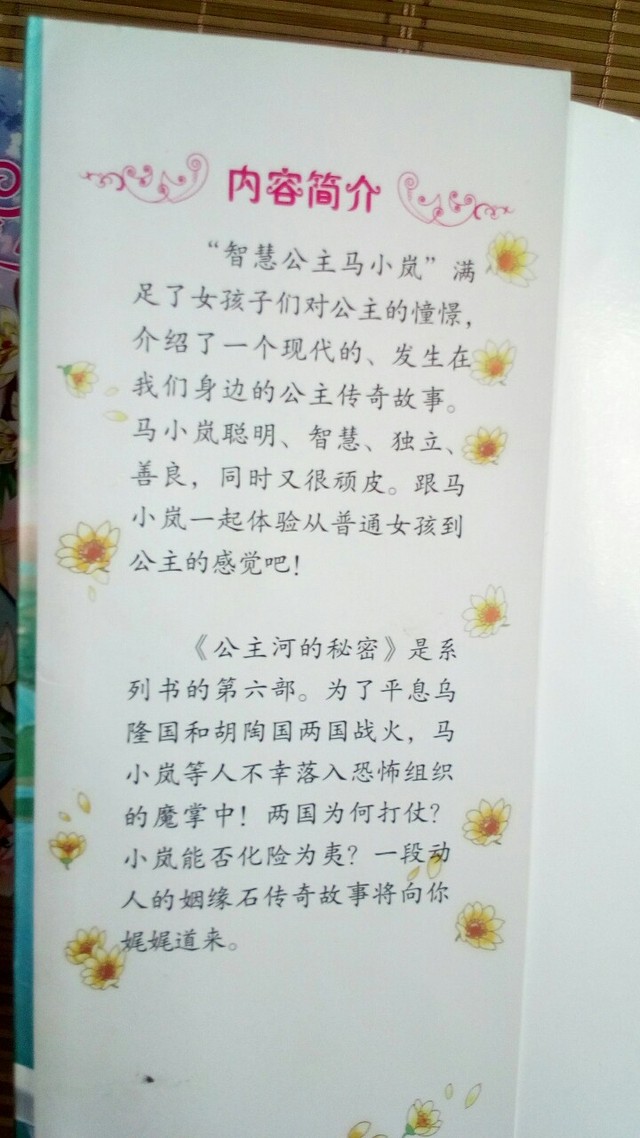 内容简介
“智慧公主马小岚”满
足了女孩子们对公主的憧憬，
介绍了一个现代的、发生在
我们身边的公主传奇故事。
马小岚聪明、智慧、独立、
善良，同时又很顽皮。跟马
小岚一起体验从普通女孩到
公主的感觉吧！
《公主河的秘密》是系
列书的第六部。为了平息乌
隆国和胡陶国两国战火，马
小岚等人不幸落入恐怖组织
的魔掌中！两国为何打仗？
小岚能否化险为夷？一段动
人的姻缘石传奇故事将向你
娓娓道来。